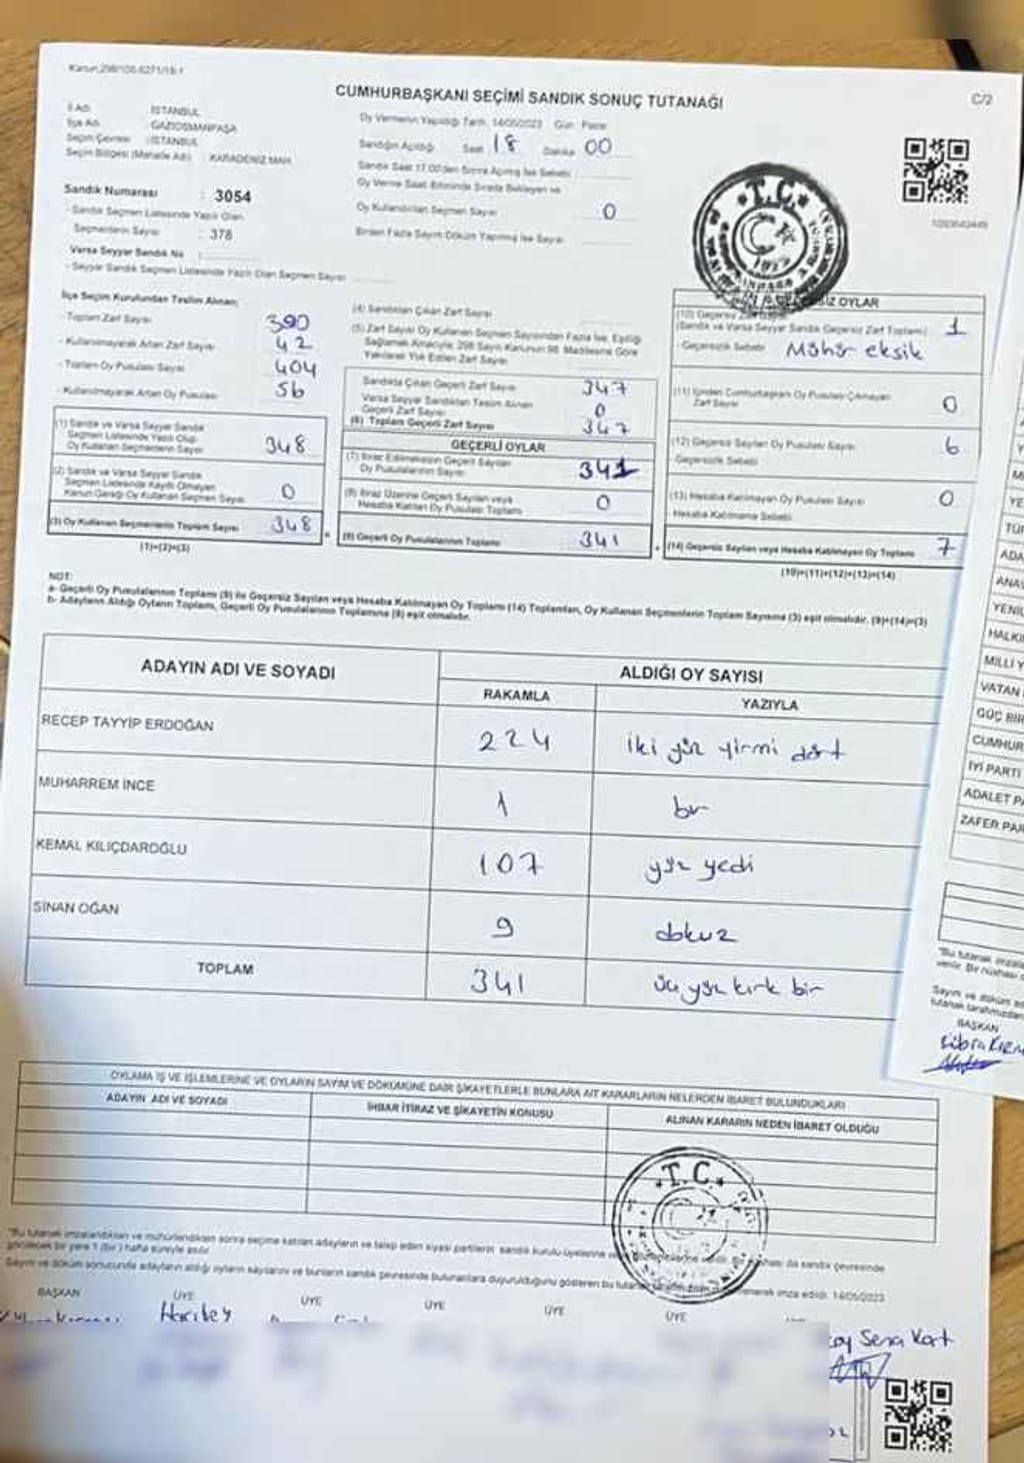 Kanun,298/105-6271/18-1
CUMHURBAŞKANI SEÇİMİ SANDIK SONUÇ TUTANAĞI
C/2
İl Adı : İSTANBUL
İlçe Adı : GAZİOSMANPAŞA
Seçim Çevresi : İSTANBUL
Seçim Bölgesi (Mahalle Adı) : KARADENİZ MAH.
Sandık Numarası : 3054
- Sandık Seçmen Listesinde Yazılı Olan
Seçmenlerin Sayısı : 378
Varsa Seyyar Sandık No :
- Seyyar Sandık Seçmen Listesinde Yazılı Olan Seçmen Sayısı
Oy Vermenin Yapıldığı Tarih: 14/05/2023 Gün: Pazar
Sandığın Açıldığı Saat 18 Dakika 00
Sandık Saat 17:00'den Sonra Açılmış İse Sebebi
Oy Verme Saati Bitiminde Sırada Bekleyen ve
Oy Kullandırılan Seçmen Sayısı 0
Birden Fazla Sayım Döküm Yapılmış İse Sayısı
T.C.
İlçe Seçim Kurulundan Teslim Alınan:
- Toplam Zarf Sayısı 390
- Kullanılmayarak Artan Zarf Sayısı 42
- Toplam Oy Pusulası Sayısı 404
- Kullanılmayarak Artan Oy Pusulası 56
(1) Sandık ve Varsa Seyyar Sandık
Seçmen Listesinde Yazılı Olup
Oy Kullanan Seçmenlerin Sayısı 348
(2) Sandık ve Varsa Seyyar Sandık
Seçmen Listesinde Kayıtlı Olmayan
Kanun Gereği Oy Kullanan Seçmen Sayısı 0
(3) Oy Kullanan Seçmenlerin Toplam Sayısı 348
(1)+(2)=(3)
(4) Sandıktan Çıkan Zarf Sayısı
(5) Zarf Sayısı Oy Kullanan Seçmen Sayısından Fazla İse, Eşitliği
Sağlamak Amacıyla, 298 Sayılı Kanunun 98. Maddesine Göre
Yakılarak Yok Edilen Zarf Sayısı
Sandıkta Çıkan Geçerli Zarf Sayısı 347
Varsa Seyyar Sandıktan Teslim Alınan
Geçerli Zarf Sayısı 0
(6) Toplam Geçerli Zarf Sayısı 347
GEÇERLİ OYLAR
(7) İtiraz Edilmeksizin Geçerli Sayılan
Oy Pusulalarının Sayısı 341
(8) İtiraz Üzerine Geçerli Sayılan veya
Hesaba Katılan Oy Pusulası Toplamı 0
(9) Geçerli Oy Pusulalarının Toplamı 341
OYLAR
(10) Geçersiz Zarf Sayısı
(Sandık ve Varsa Seyyar Sandık Geçersiz Zarf Toplamı) 1
- Geçersizlik Sebebi: Mühür eksik
(11) İçinden Cumhurbaşkanı Oy Pusulası Çıkmayan
Zarf Sayısı 0
(12) Geçersiz Sayılan Oy Pusulası Sayısı 6
Geçersizlik Sebebi
(13) Hesaba Katılmayan Oy Pusulası Sayısı 0
- Hesaba Katılmama Sebebi
(14) Geçersiz Sayılan veya Hesaba Katılmayan Oy Toplamı 7
(10)+(11)+(12)+(13)=(14)
NOT:
a- Geçerli Oy Pusulalarının Toplamı (9) ile Geçersiz Sayılan veya Hesaba Katılmayan Oy Toplamı (14) Toplamları, Oy Kullanan Seçmenlerin Toplam Sayısına (3) eşit olmalıdır. (9)+(14)=(3)
b- Adayların Aldığı Oyların Toplamı, Geçerli Oy Pusulalarının Toplamına (9) eşit olmalıdır.
ADAYIN ADI VE SOYADI
ALDIĞI OY SAYISI
RAKAMLA YAZIYLA
RECEP TAYYİP ERDOĞAN 224 iki yüz yirmi dört
MUHARREM İNCE 1 bir
KEMAL KILIÇDAROĞLU 107 yüz yedi
SİNAN OĞAN 9 dokuz
TOPLAM 341 üç yüz kırk bir
OYLAMA İŞ VE İŞLEMLERİNE VE OYLARIN SAYIM VE DÖKÜMÜNE DAİR ŞİKAYETLERLE BUNLARA AİT KARARLARIN NELERDEN İBARET BULUNDUKLARI
ADAYIN ADI VE SOYADI
İHBAR İTİRAZ VE ŞİKAYETİN KONUSU
ALINAN KARARIN NEDEN İBARET OLDUĞU
T.C.
"Bu tutanak imzalandıktan ve mühürlendikten sonra seçime katılan adayların ve talep eden siyasi partilerin sandık kurulu üyelerine
sandık çevresinde
görülecek bir yere 1 (bir) hafta süreyle asılır.
Sayım ve döküm sonucunda adayların aldığı oyların sayılarını ve bunların sandık çevresinde bulunanlara duyurulduğunu gösteren bu
imza edildi. 14/05/2023
BAŞKAN ÜYE ÜYE ÜYE ÜYE ÜYE
Sena Kart
YE
TÜR
ADA
ANA
YENİ
HALKI
MİLLİ Y
VATAN
GÜÇ BİR
CUMHUR
İYİ PARTİ
ADALET PA
ZAFER PAR
"Bu tutanak imzala
verilir. Bir nüshası
Sayım ve döküm
tutanak tarafımızdan
BAŞKAN